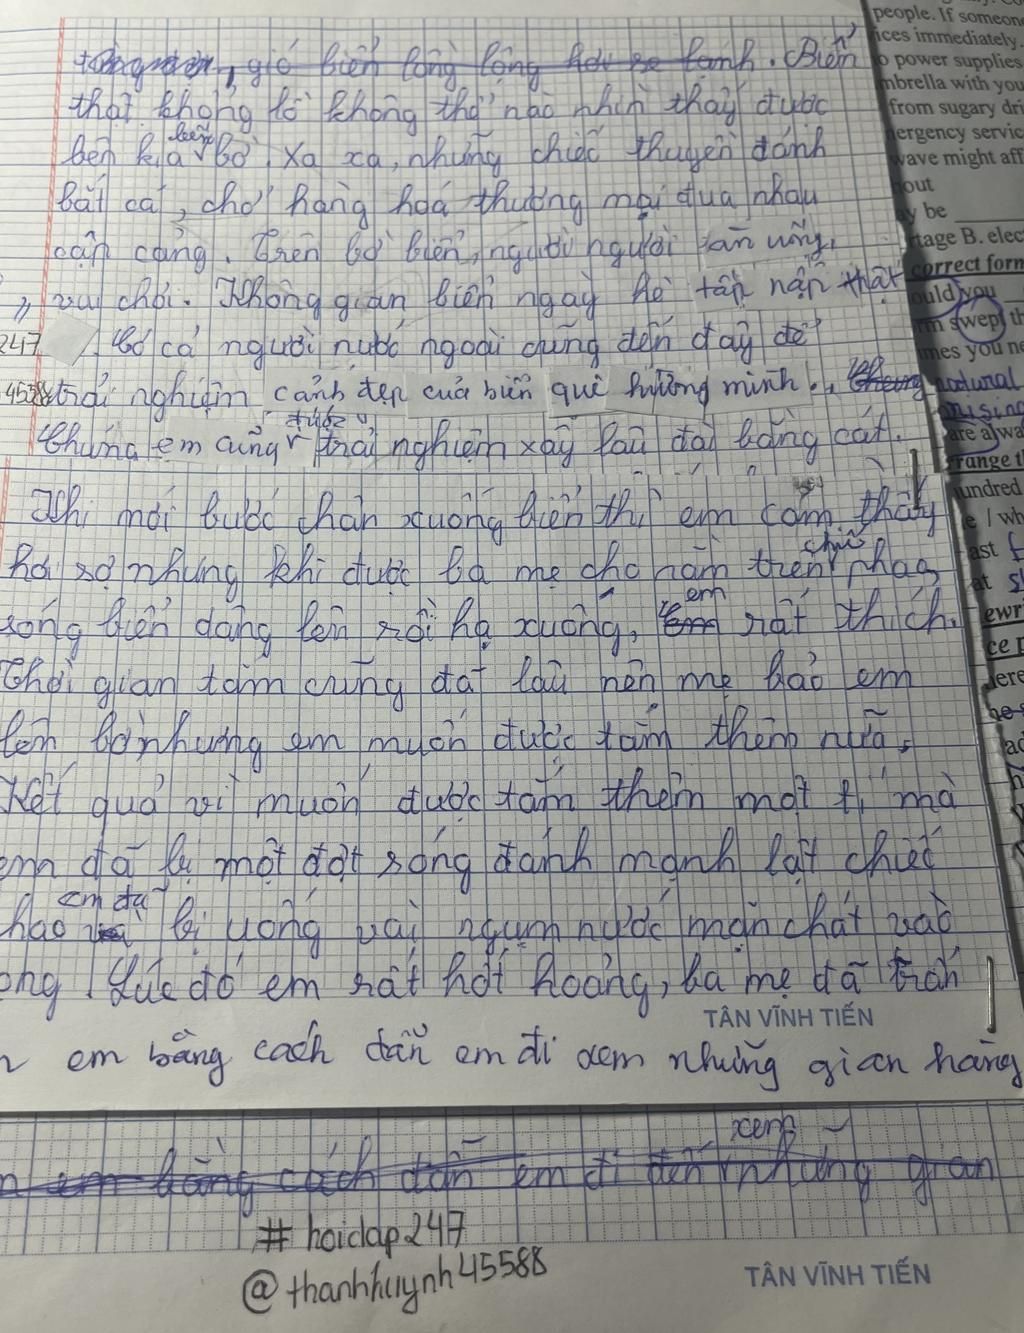 , gió biển lồng lộng hơi se lạnh. Biển
thật khổng lồ không thể nào nhìn thấy được
bến kia biển bờ. Xa xa, những chiếc thuyền đánh
bắt cá, chở hàng hoá thương mại đua nhau
cận cảng. Trên bờ biển, người người ăn uống,
vui chơi. Không gian biển ngày hè tấp nập thật
247 Có cả người nước ngoài cũng đến đây để
45588 trải nghiệm cảnh đẹp của biển quê hương mình.
Chúng em cũng được trải nghiệm xây lâu đài bằng cát.
Khi mới bước chân xuống biển thì em cảm thấy
hơi sợ nhưng khi được ba mẹ cho nằm trên chiếc phao,
sóng biển dâng lên rồi hạ xuống, em rất thích.
Thời gian tắm cũng đã lâu nên mẹ bảo em
lên bờ nhưng em muốn được tắm thêm nữa.
Kết quả vì muốn được tắm thêm một tí mà
em đã bị một đợt sóng đánh mạnh lật chiếc
hao em đã bị uống vài ngụm nước mặn chát vào
ong. Lúc đó em rất hốt hoảng, ba mẹ đã trấn
TÂN VĨNH TIẾN
n em bằng cách dẫn em đi xem những gian hàng
xem
n em bằng cách dẫn em đi đến những gian
#hoidap247
@thanhhuynh45588
TÂN VĨNH TIẾN
people. If someon
ices immediately.
o power supplies
mbrella with you
from sugary dri
nergency servic
wave might aff
hout
ay be
rtage B. elec
correct form
ould you
swept th
mes you ne
natural
are alwa
rrange t
hundred
e / wh
ast
at
ewr
ce